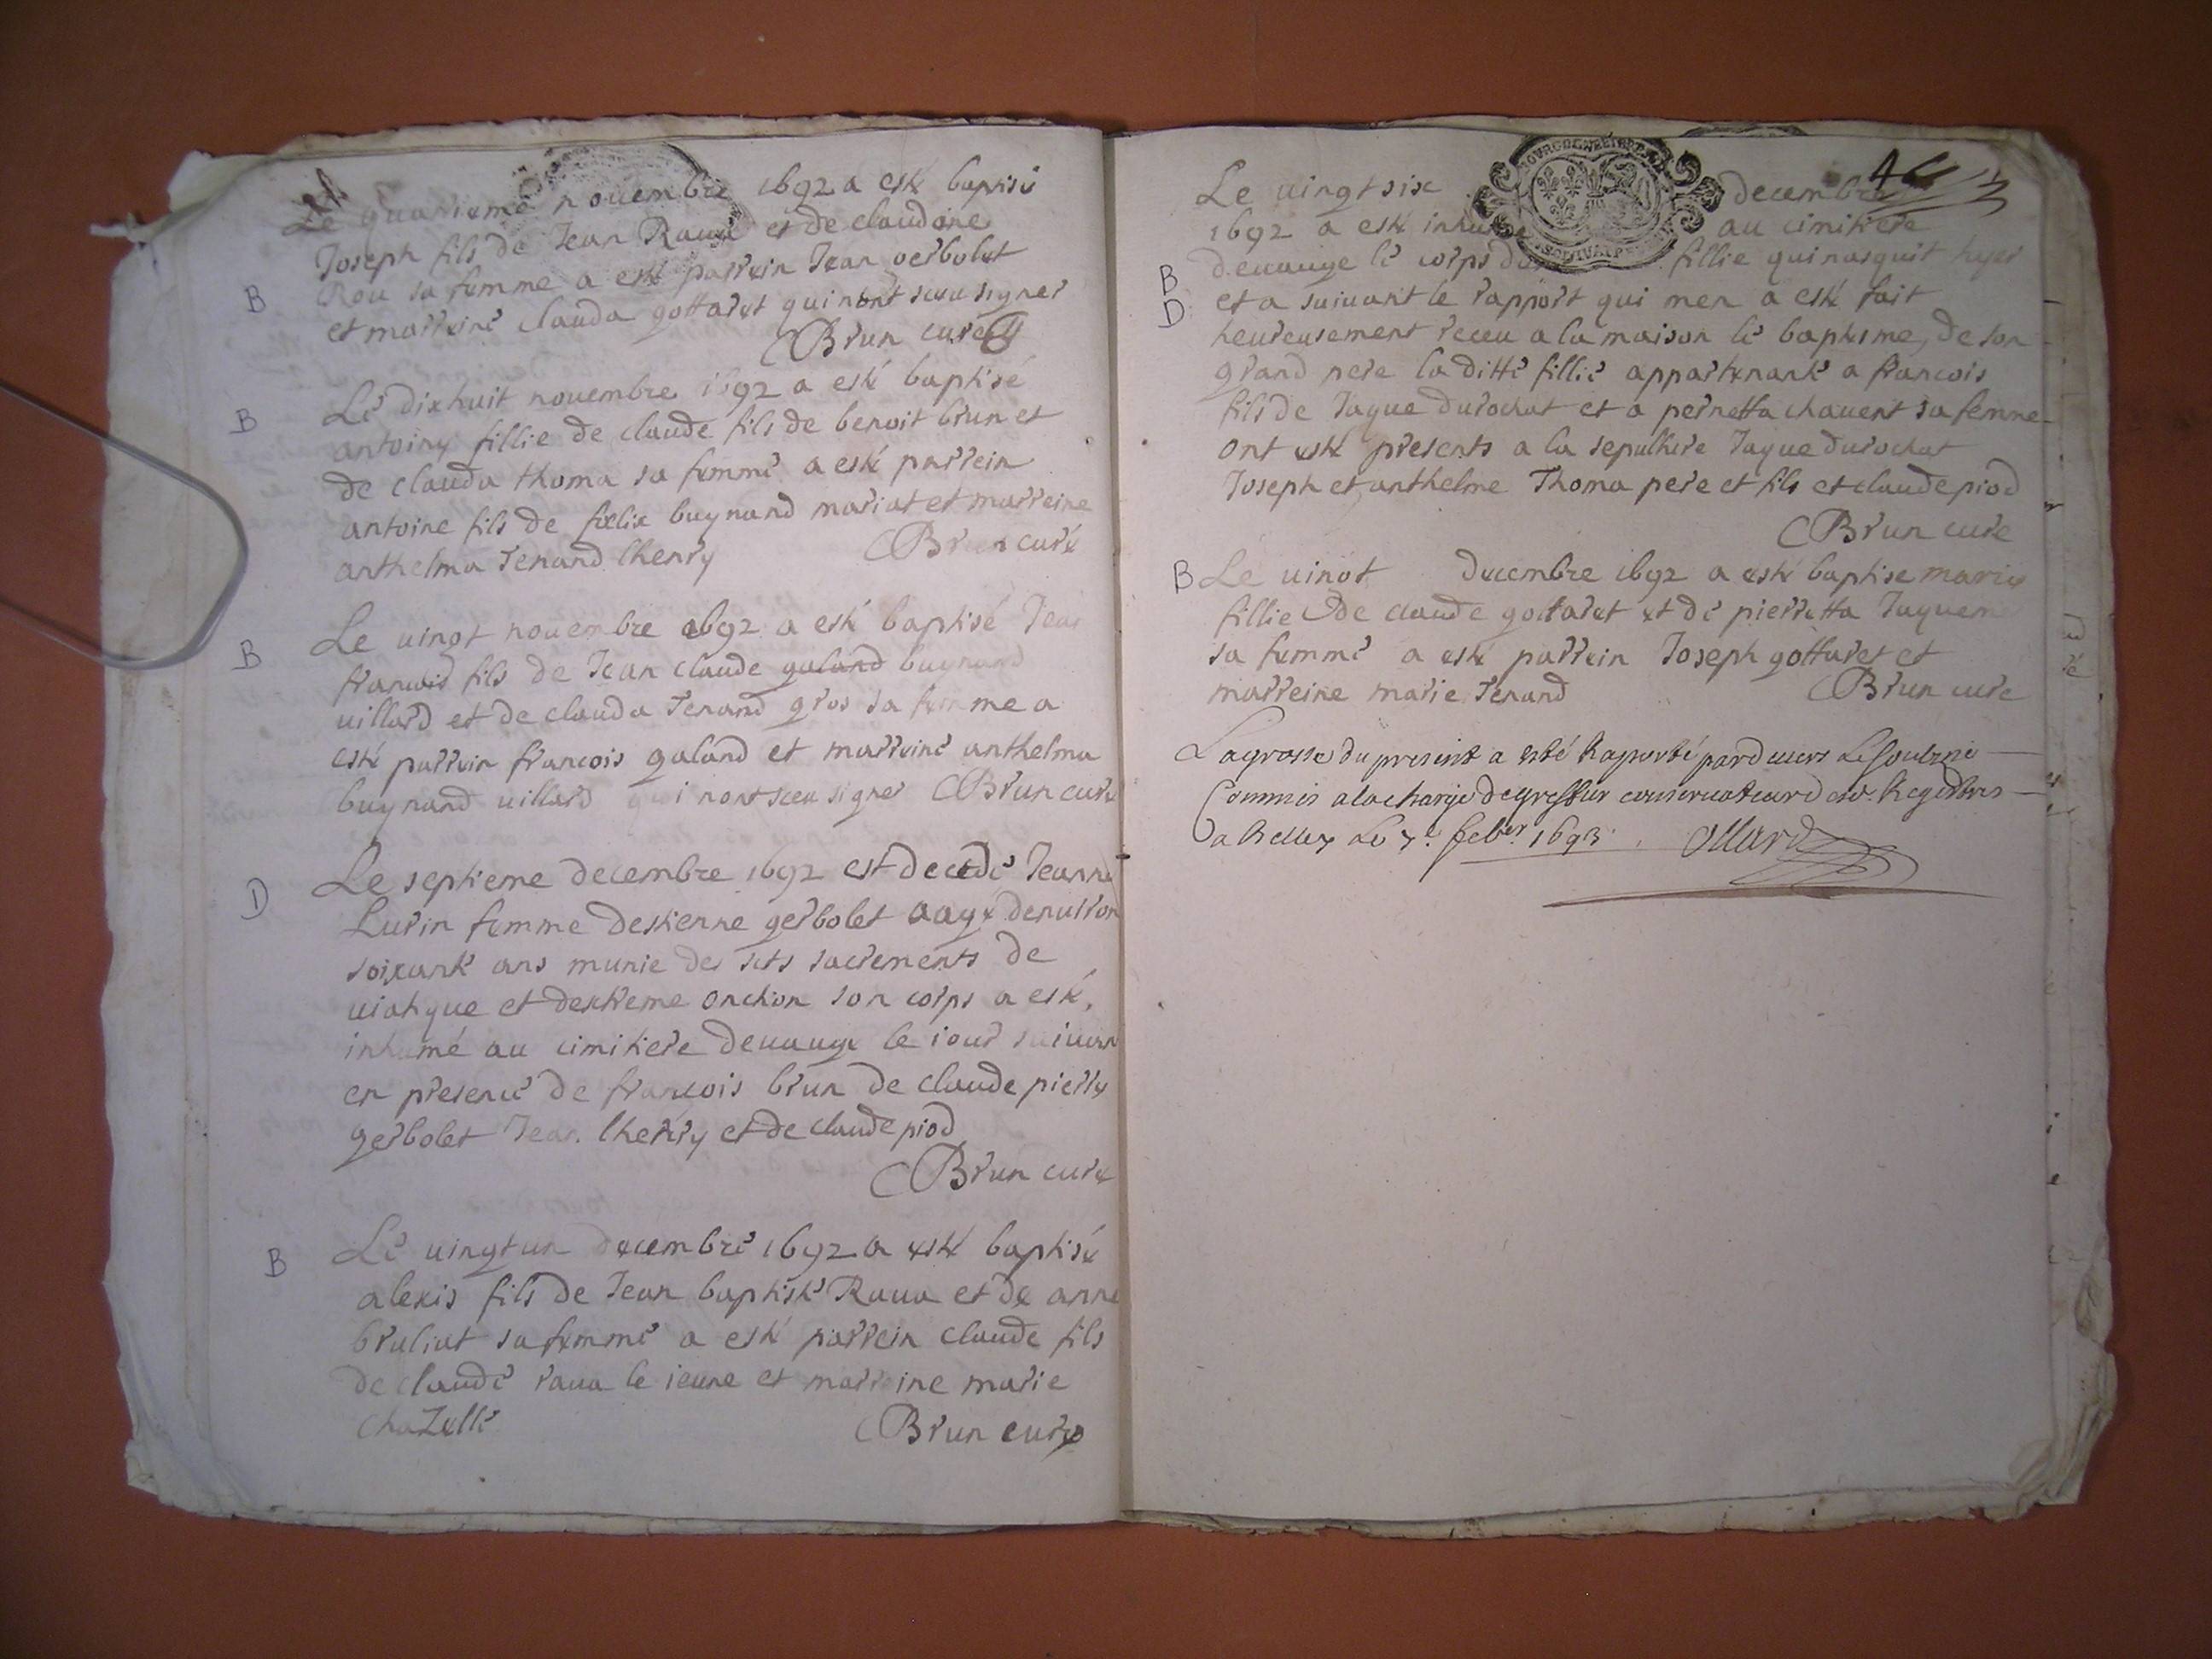 Le quatrieme nouembre 1692 a esté baptisé
Joseph fils de Jean Raua et de claudine
Rou sa femme a esté parrein Jean gerbolet
et marreine clauda gottaret qui nont sceu signer
B
Brun curé
B
Le dixhuit nouembre 1692 a esté baptisé
antoiny fillie de claude fils de benoit brun et
de clauda thoma sa femme a esté parrein
antoine fils de fœlix buynand mariat et marreine
anthelma Tenand lhenry Brun curé
B
Le uingt nouembre 1692 a esté baptisé Jean
francois fils de Jean claude galand buynand
uillard et de clauda Tenand gros sa femme a
esté parrein francois galand et marreine anthelma
buynand uillard qui nont sceu signer Brun curé
D
Le septieme decembre 1692 est decedé Jeanne
Lurin femme destienne gerbolet aagé denuiron
soixante ans munie des sts sacrements de
uiatique et dextreme onction son corps a esté
inhumé au cimitiere deuauge le iour suiuan
en presence de francois brun de claude pierre
gerbolet Jean lhenry et de claude piod
Brun curé
B
Le uingtun decembre 1692 a esté baptisé
alexis fils de Jean baptiste Raua et de anne
bruliat sa femme a esté parrein claude fils
de claude raua le ieune et marreine marie
chaZelle Brun curé
Le uingtsix decembre
1692 a esté au cimitiere
B
D
deuauge le corps fillie qui nasquit hyer
et a suiuant le rapport qui men a esté fait
heureusement receu a la maison le baptisme, de son
grand pere la ditte fillie appartenante a francois
fils de Jaque durochat et a pernetta chauent sa femme
ont esté presents a la sepulture Jaque durochat
Joseph et anthelme Thoma pere et fils et claude piod
Brun cure
B
Le uingt decembre 1692 a esté baptise marie
fillie de claude gottaret et de pierretta Juquem
sa femme a esté parrein Joseph gottaret et
marreine marie Tenand Brun cure
La grosse du present a esté Raporté pardeuers Le soubsné
Commis a la charge de greffier conseruateur desd. Registres
a Belley Le 7e febver 1693. Ollard